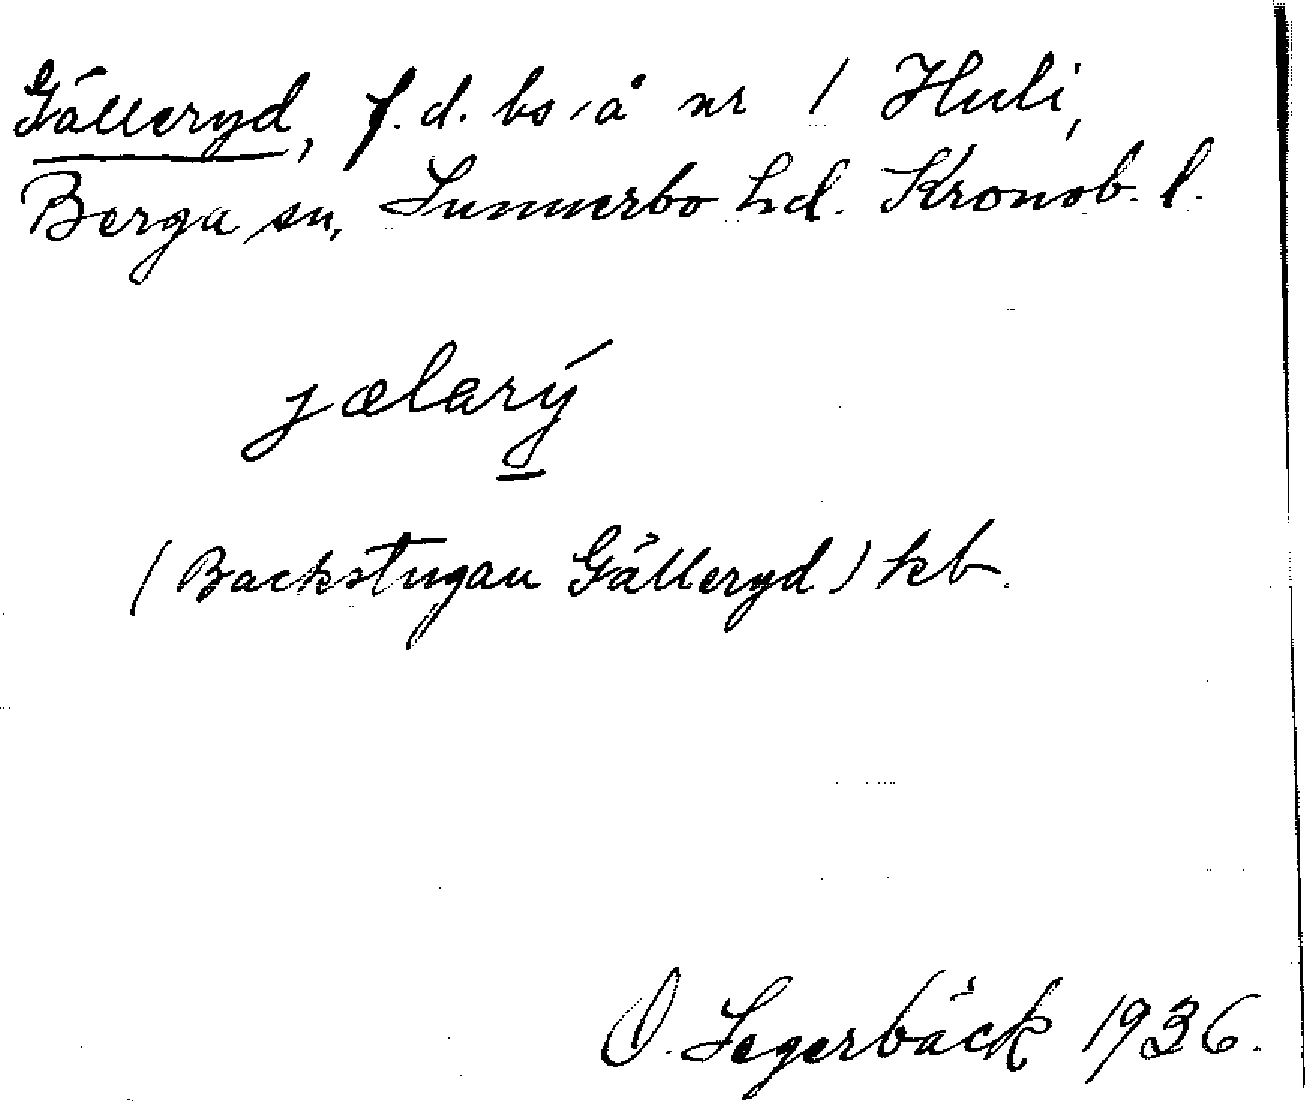 Gälleryd, f.d. bs å nr 1 Huli,
Berga sn, Sunnerbo hd. Kronob. l.
jælarý
(Backstugan Gälleryd) kb.
O. Segerbäck 1936.